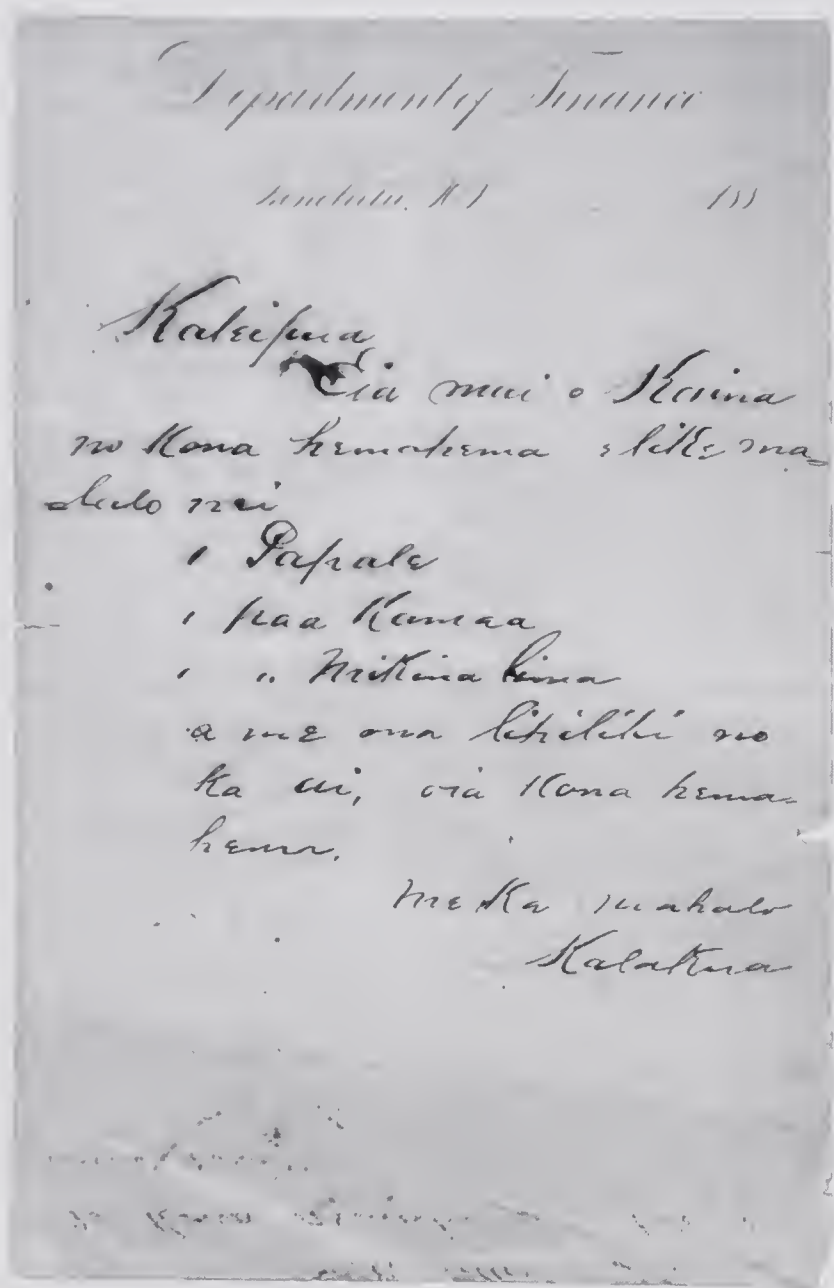 Department of Finance
Honolulu, H. I. 188
Kaleipua
Eia mai o Kaina
no Kona hemahema e like ma-
laelo nei
1 Papale
1 paa Kamaa
1 " Mikina lima
a me ona lihilihi no
ka ui, oia Kona hema-
hema.
Me Ka mahalo
Kalakaua